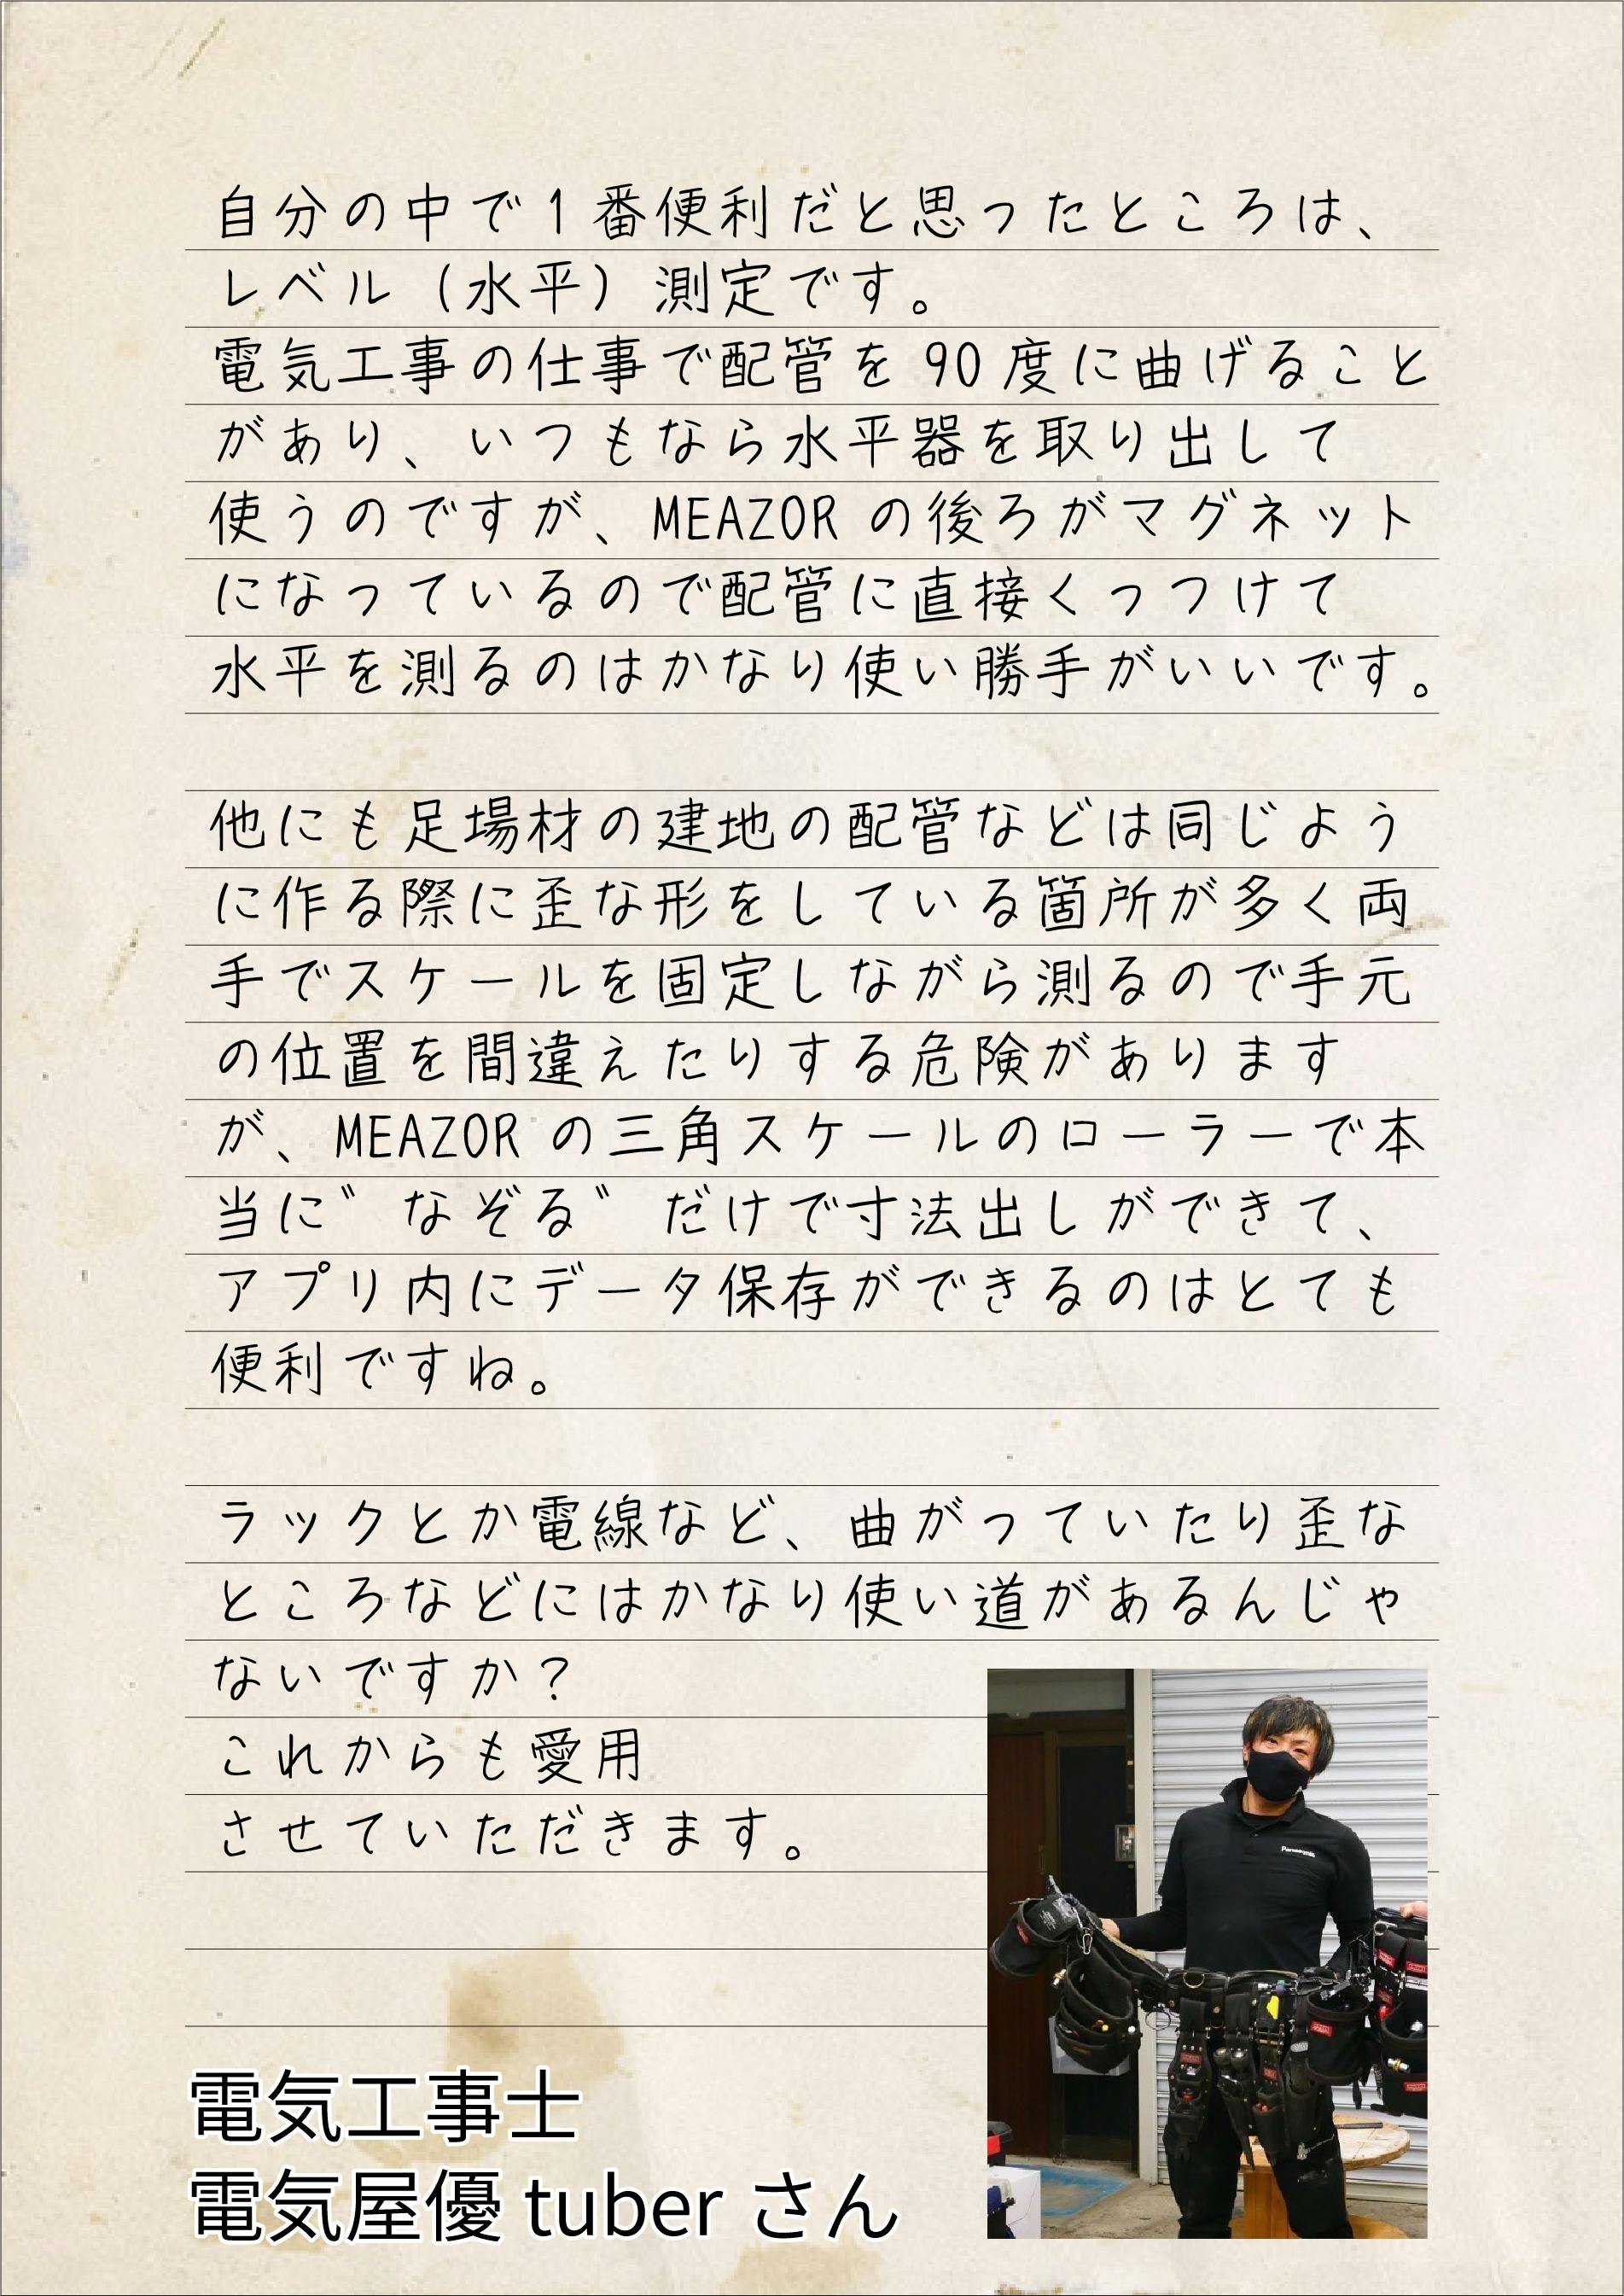 自分の中で1番便利だと思ったところは、
レベル（水平）測定です。
電気工事の仕事で配管を90度に曲げること
があり、いつもなら水平器を取り出して
使うのですが、MEAZORの後ろがマグネット
になっているので配管に直接くっつけて
水平を測るのはかなり使い勝手がいいです。
他にも足場材の建地の配管などは同じよう
に作る際に歪な形をしている箇所が多く両
手でスケールを固定しながら測るので手元
の位置を間違えたりする危険があります
が、MEAZORの三角スケールのローラーで本
当に〝なぞる〝だけで寸法出しができて、
アプリ内にデータ保存ができるのはとても
便利ですね。
ラックとか電線など、曲がっていたり歪な
ところなどにはかなり使い道があるんじゃ
ないですか？
これからも愛用
させていただきます。
Panasonic
電気工事士
電気屋優tuberさん